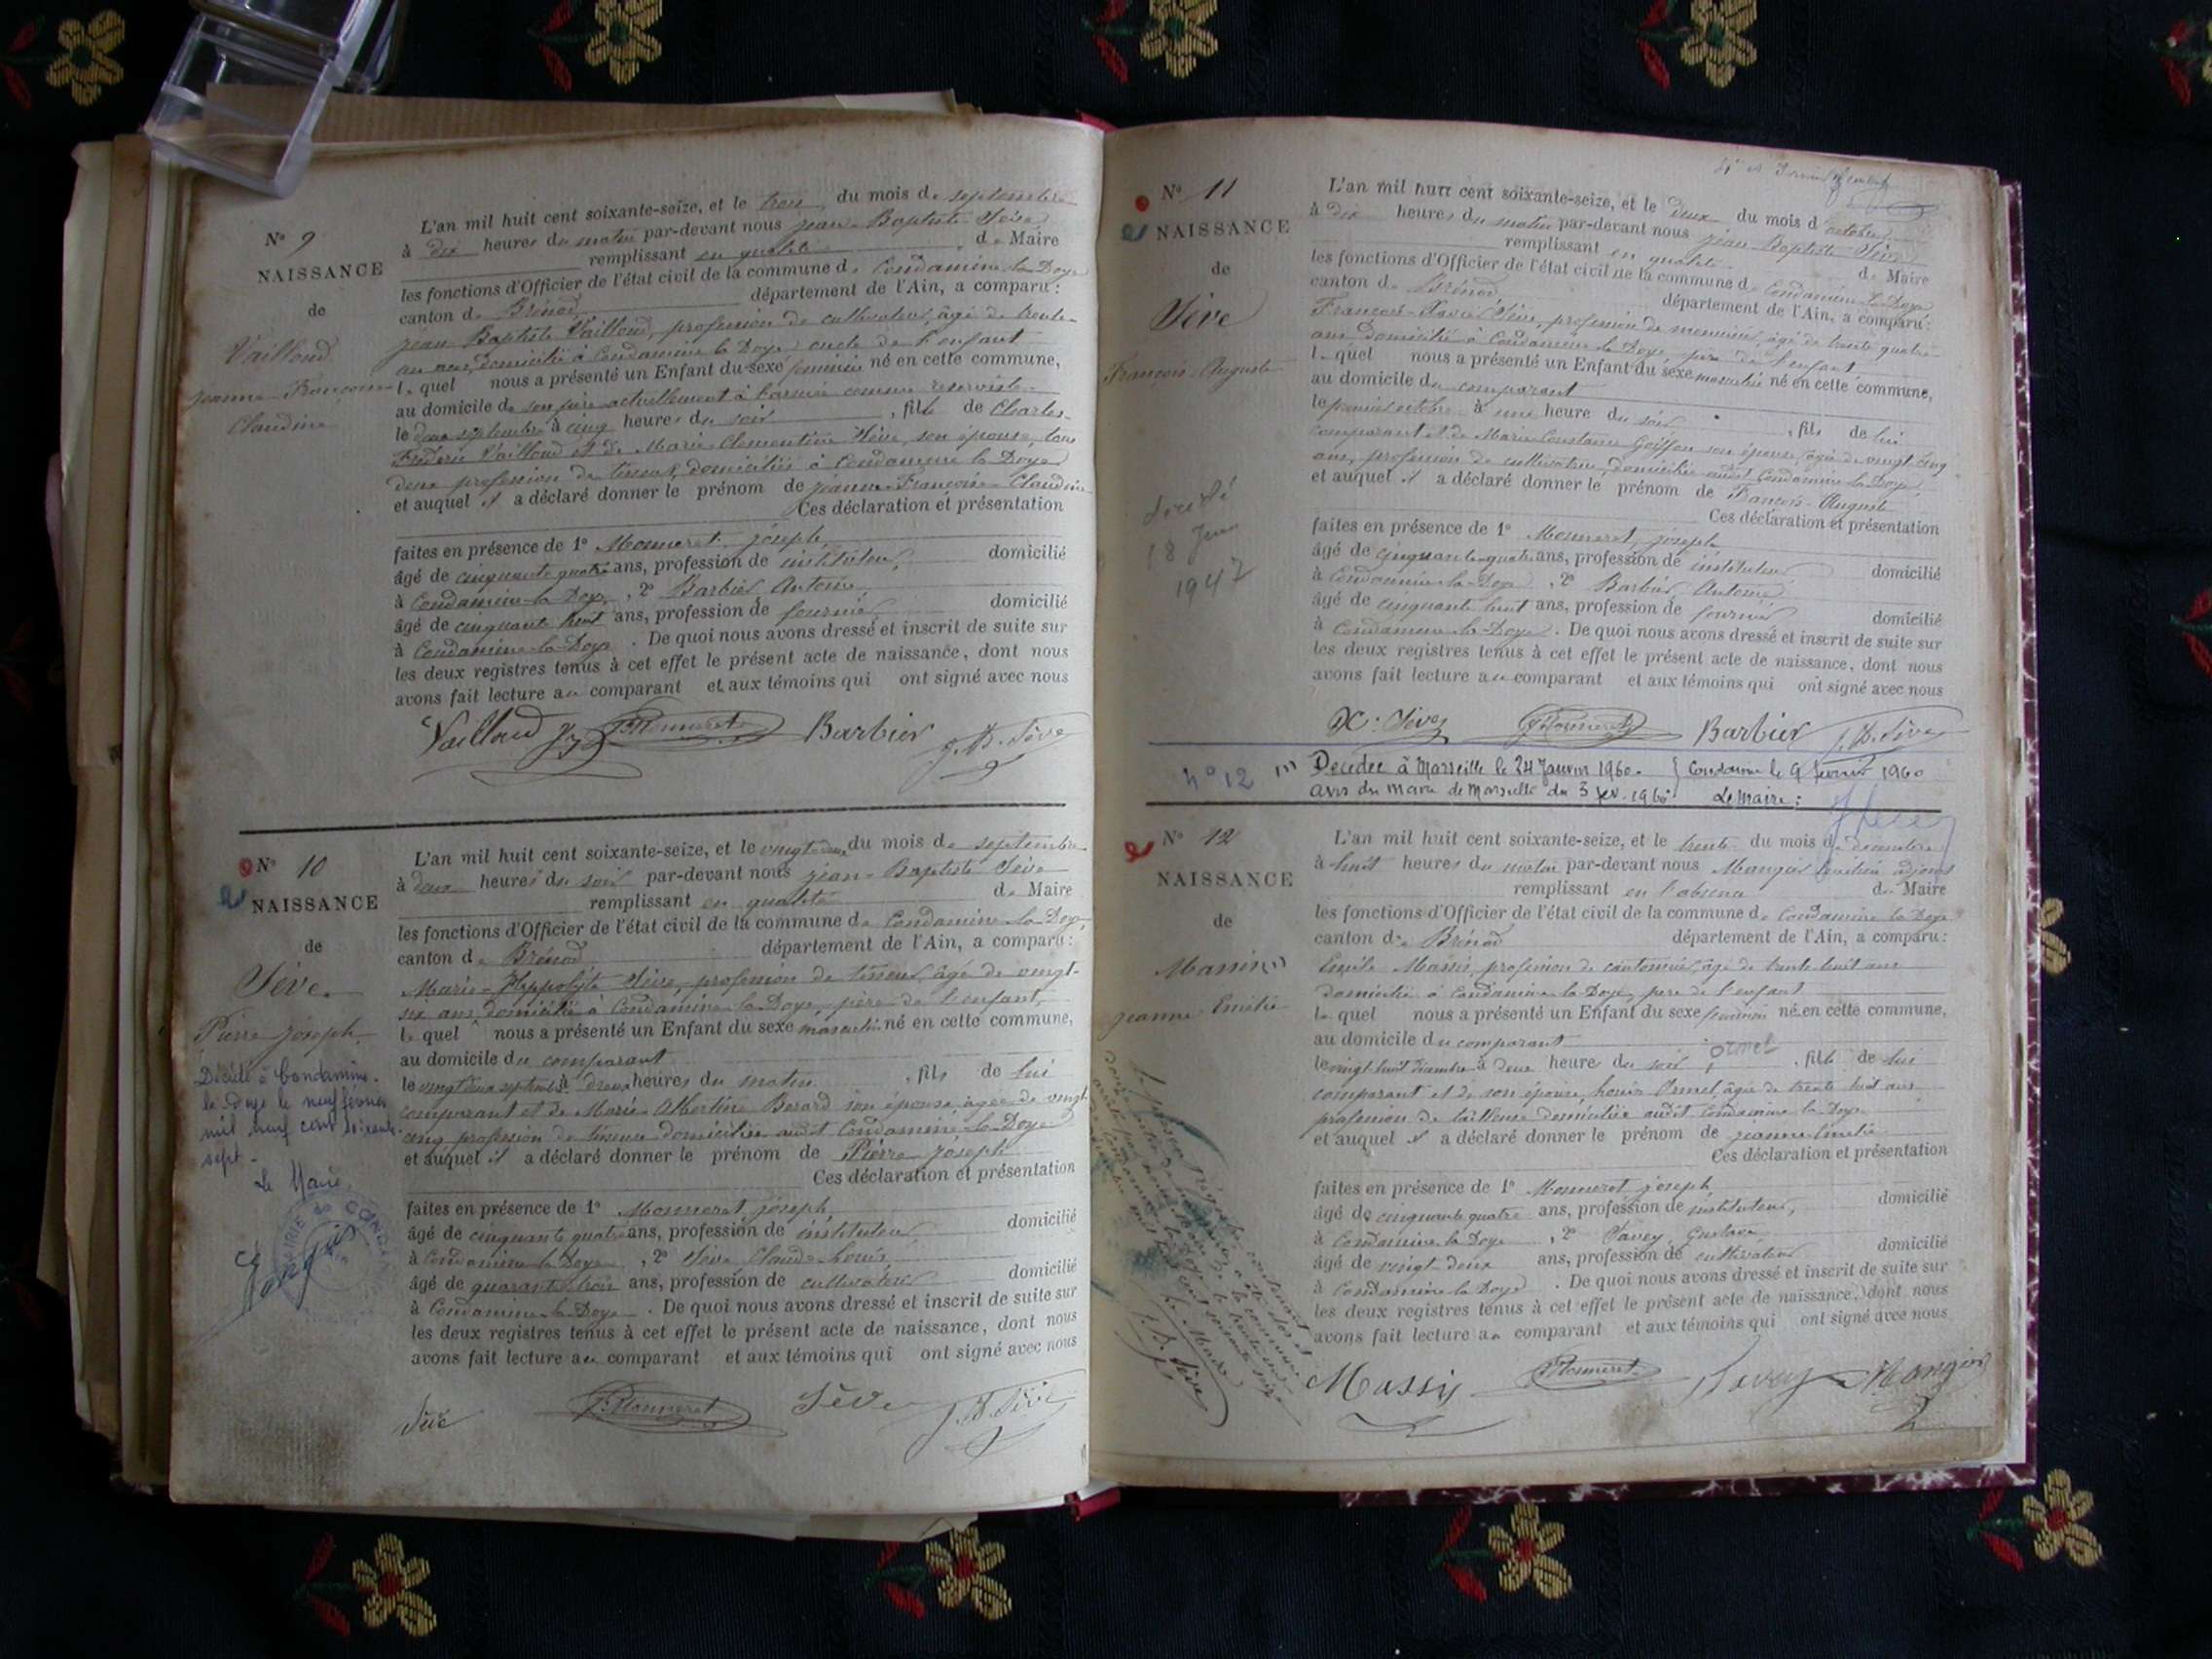 N° 9
NAISSANCE
de
Vailloud
Jeanne-Françoise
Claudine
L'an mil huit cent soixante-seize, et le trois du mois de septembre
à dix heures du matin par-devant nous jean-Baptiste Sève
remplissant en qualité de Maire
les fonctions d'Officier de l'état civil de la commune de Condamine-la-Doye
canton de Brénod département de l'Ain, a comparu:
jean Baptiste Vailloud, profession de cultivateur, âgé de trente-
un ans, domicilié à Condamine la Doye, oncle de l'enfant
lequel nous a présenté un Enfant du sexe féminin né en cette commune,
au domicile de son père actuellement à l'armée comme réserviste
le deux septembre à cinq heures du soir, fille de Charles-
Frédéric Vailloud et de Marie-Clementine Sève, son épouse, tous
deux profession de tisseur, domiciliés à Condamine la Doye
et auquel il a déclaré donner le prénom de jeanne-Françoise-Claudine
Ces déclaration et présentation
faites en présence de 1° Monneret joseph,
âgé de cinquante quatre ans, profession de instituteur, domicilié
à Condamine-la-Doye, 2° Barbier Antoine,
âgé de cinquante huit ans, profession de fournier domicilié
à Condamine-la-Doye. De quoi nous avons dressé et inscrit de suite sur
les deux registres tenus à cet effet le présent acte de naissance, dont nous
avons fait lecture au comparant et aux témoins qui ont signé avec nous
Vailloud Monneret Barbier J. B. Sève
N° 10
NAISSANCE
de
Sève
Pierre joseph
Décédé à Condamine-
la-Doye le neuf février
mil neuf cent soixante-
sept.
Le Maire,
L'an mil huit cent soixante-seize, et le vingt-deux du mois de septembre
à deux heures du soir par-devant nous jean-Baptiste Sève
remplissant en qualité de Maire
les fonctions d'Officier de l'état civil de la commune de Condamine-la-Doye,
canton de Brénod département de l'Ain, a comparu:
Marie-Hyppolyte Sève, profession de tisseur, âgé de vingt-
six ans, domicilié à Condamine la-Doye, père de l'enfant,
lequel nous a présenté un Enfant du sexe masculin né en cette commune,
au domicile du comparant
le vingt deux septembre à deux heures du matin, fils de lui
comparant et de Marie Albertine Berard son épouse, âgée de vingt
cinq profession de tisseuse domiciliée audit Condamine-la-Doye
et auquel il a déclaré donner le prénom de Pierre-Joseph
Ces déclaration et présentation
faites en présence de 1° Monneret joseph,
âgé de cinquante quatre ans, profession de instituteur domicilié
à Condamine la Doye, 2° Sève Claude-Louis
âgé de quarante trois ans, profession de cultivateur domicilié
à Condamine-la-Doye. De quoi nous avons dressé et inscrit de suite sur
les deux registres tenus à cet effet le présent acte de naissance, dont nous
avons fait lecture au comparant et aux témoins qui ont signé avec nous
Sève Monneret Sève J. B. Sève
N° 11
NAISSANCE
de
Sève
François-Auguste
décédé
18 Juin
1947
L'an mil huit cent soixante-seize, et le deux du mois d'octobre
à dix heures du matin par-devant nous jean-Baptiste Sève
remplissant en qualité de Maire
les fonctions d'Officier de l'état civil de la commune de Condamine-la-Doye
canton de Brénod département de l'Ain, a comparu:
François-Xavier Sève, profession de menuisier, âgé de trente quatre
ans domicilié à Condamine la Doye, père de l'enfant
lequel nous a présenté un Enfant du sexe masculin né en cette commune,
au domicile du comparant
le premier octobre à une heure du soir, fils de lui
comparant et de Marie Constance Goiffon son épouse, âgée de vingt cinq
ans, profession de cultivatrice, domiciliée audit Condamine-la-Doye,
et auquel il a déclaré donner le prénom de François-Auguste
Ces déclaration et présentation
faites en présence de 1° Monneret joseph
âgé de cinquante-quatre ans, profession de instituteur domicilié
à Condamine-la-Doye, 2° Barbier Antoine
âgé de cinquante huit ans, profession de fournier domicilié
à Condamine-la-Doye. De quoi nous avons dressé et inscrit de suite sur
les deux registres tenus à cet effet le présent acte de naissance, dont nous
avons fait lecture au comparant et aux témoins qui ont signé avec nous
X. Sève Monneret Barbier J. B. Sève
n° 12 (1) Décédée à Marseille le 24 Janvier 1960. Condamine le 9 février 1960
avis du maire de Marseille du 3 fev. 1960. Le Maire:
N° 12
NAISSANCE
de
Massin (1)
jeanne Emélie
L'an mil huit cent soixante-seize, et le trente du mois de décembre
à huit heures du matin par-devant nous Mangin adjoint
remplissant en l'absence de Maire
les fonctions d'Officier de l'état civil de la commune de Condamine la Doye
canton de Brénod département de l'Ain, a comparu:
Emile Massin, profession de cantonnier, âgé de trente-huit ans
domicilié à Condamine la-Doye, père de l'enfant
lequel nous a présenté un Enfant du sexe féminin né en cette commune,
au domicile du comparant
Ormet
le vingt-huit décembre à deux heure du soir, fille de lui
comparant et de son épouse, Louise Ormet, âgée de trente huit ans
profession de tailleuse domiciliée audit Condamine la Doye
et auquel il a déclaré donner le prénom de jeanne-Emélie
Ces déclaration et présentation
faites en présence de 1° Monneret joseph
âgé de cinquante quatre ans, profession de instituteur, domicilié
à Condamine la Doye, 2° Savey Gustave
âgé de vingt deux ans, profession de cultivateur domicilié
à Condamine la Doye. De quoi nous avons dressé et inscrit de suite sur
les deux registres tenus à cet effet le présent acte de naissance, dont nous
avons fait lecture au comparant et aux témoins qui ont signé avec nous
Massin Monneret Savey Mangin
J. B. Sève